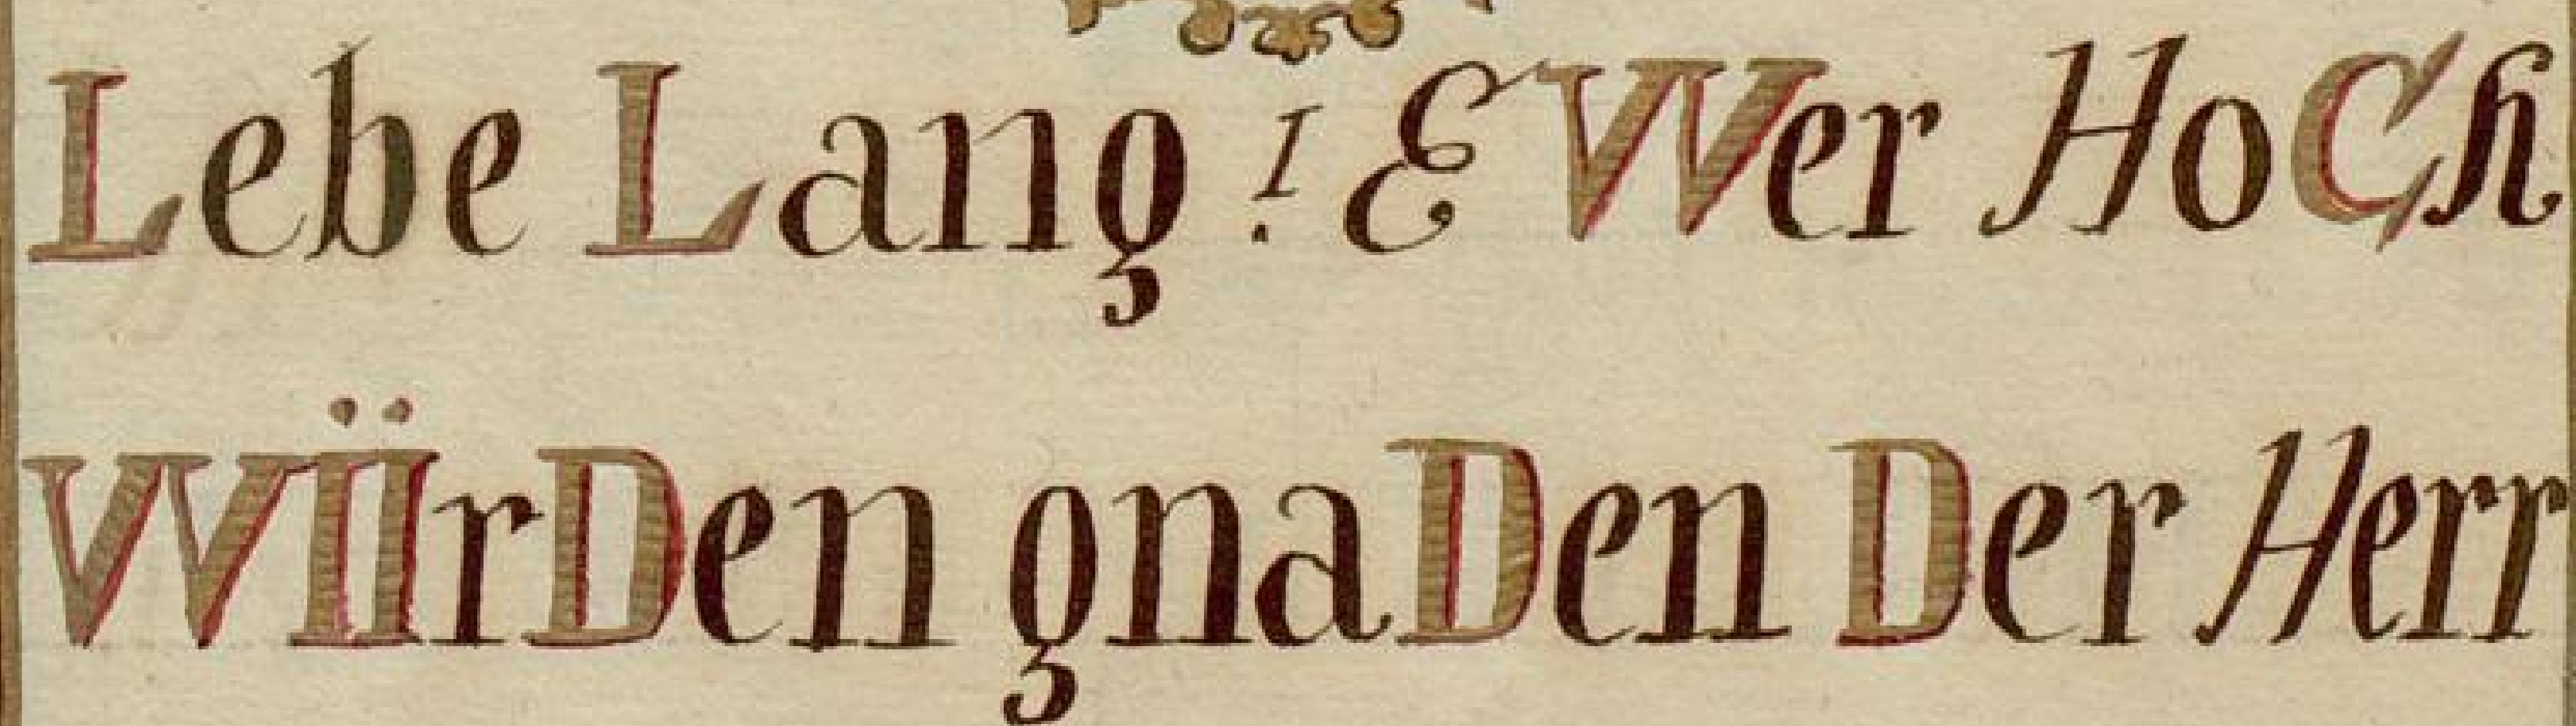 Lebe Lang! EWer HoCh
WÜrDen gnaDen Der Herr